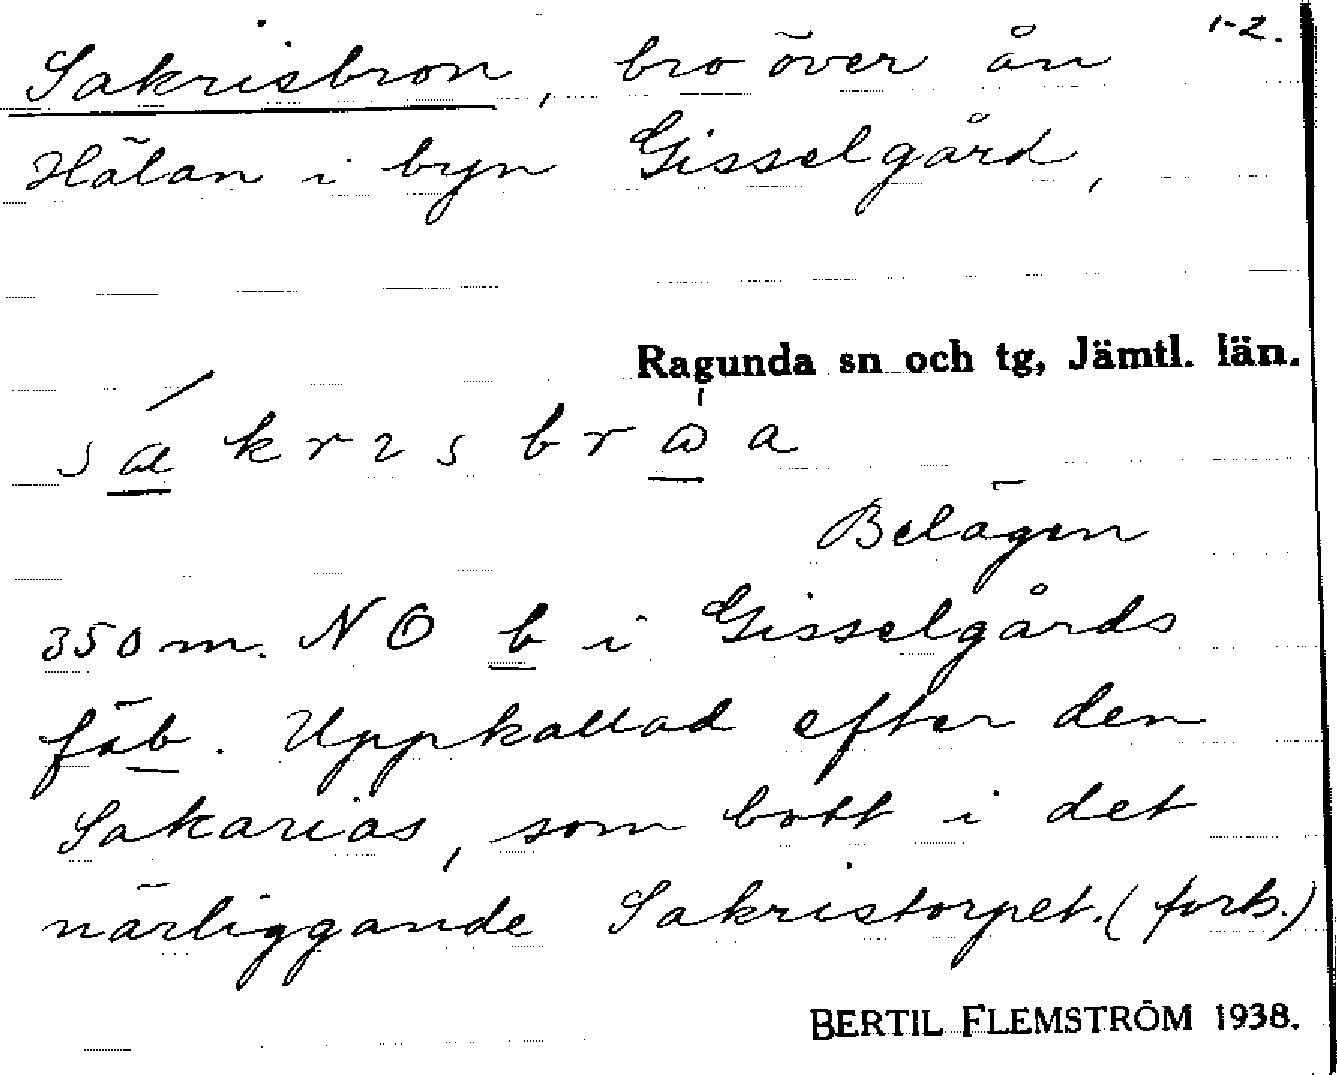 1-2.
Sakrisbron, bro över ån
Hälan i byn Gisselgård,
Ragunda sn och tg, Jämtl. län.
Belägen
350 m. NO b i Gisselgårds
fäb. Uppkallad efter den
Sakarias, som bott i det
närliggande Sakristorpet. (forts.)
BERTIL FLEMSTRÖM 1938.